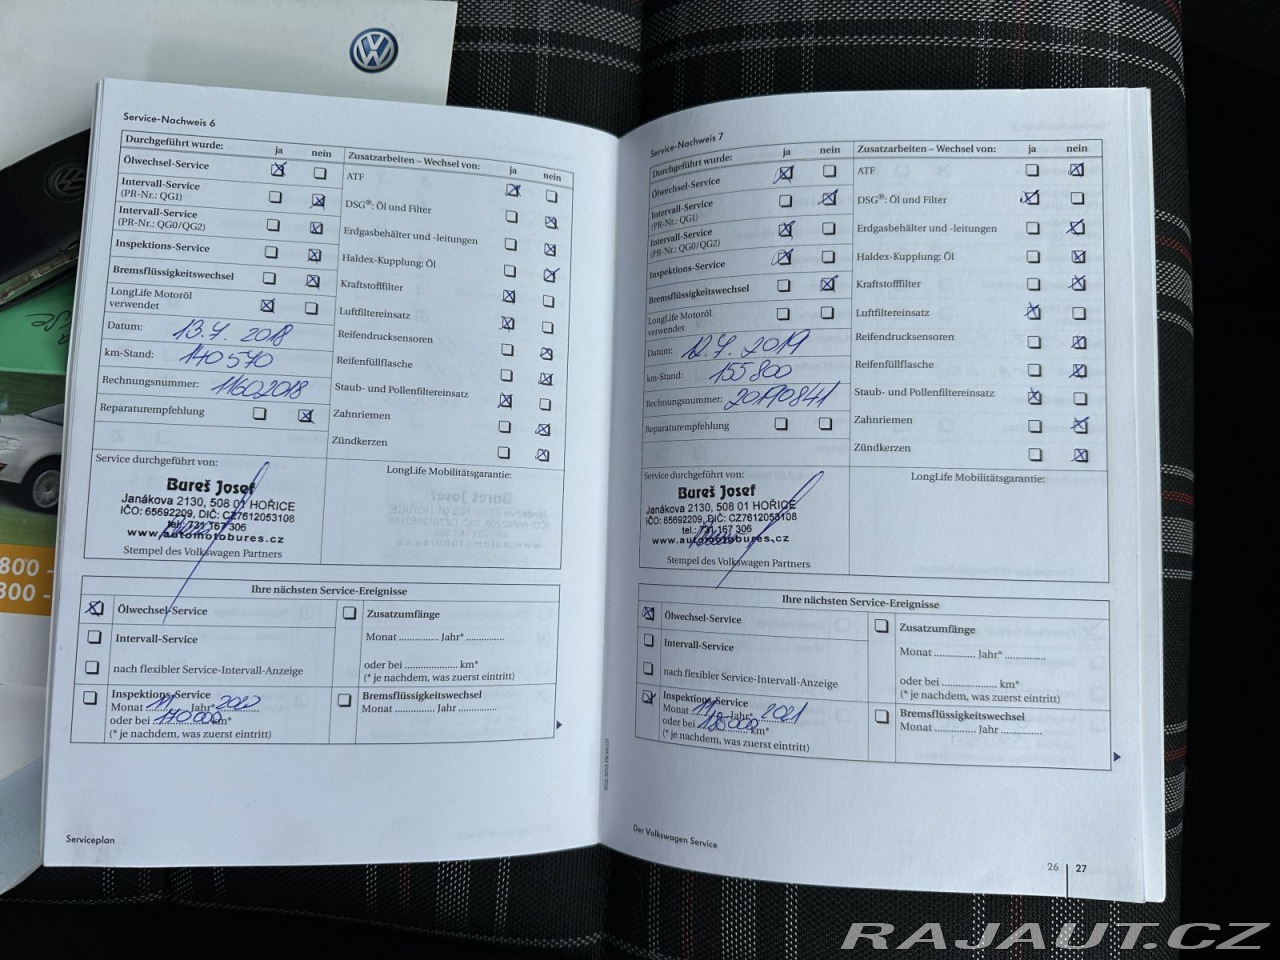 Service-Nachweis 6
Durchgeführt wurde: ja nein
Ölwechsel-Service
Intervall-Service
(PR-Nr.: QG1)
Intervall-Service
(PR-Nr.: QG0/QG2)
Inspektions-Service
Bremsflüssigkeitswechsel
LongLife Motoröl
verwendet
Datum: 13.7. 2018
km-Stand: 140 570
Rechnungsnummer: 11602018
Reparaturempfehlung
Zusatzarbeiten – Wechsel von: ja nein
ATF
DSG®: Öl und Filter
Erdgasbehälter und -leitungen
Haldex-Kupplung: Öl
Kraftstofffilter
Luftfiltereinsatz
Reifendrucksensoren
Reifenfüllflasche
Staub- und Pollenfiltereinsatz
Zahnriemen
Zündkerzen
Service durchgeführt von:
Bureš Josef
Janákova 2130, 508 01 HOŘICE
IČO: 65692209, DIČ: CZ7612053108
tel.: 731 167 306
www.automotobures.cz
Stempel des Volkswagen Partners
LongLife Mobilitätsgarantie:
Ihre nächsten Service-Ereignisse
Ölwechsel-Service
Intervall-Service
nach flexibler Service-Intervall-Anzeige
Inspektions-Service
Monat 11 Jahr* 2020
oder bei 170 000 km*
(* je nachdem, was zuerst eintritt)
Zusatzumfänge
Monat .............. Jahr* ..............
oder bei .................... km*
(* je nachdem, was zuerst eintritt)
Bremsflüssigkeitswechsel
Monat ........... Jahr ..............
Serviceplan
Service-Nachweis 7
Durchgeführt wurde: ja nein
Ölwechsel-Service
Intervall-Service
(PR-Nr.: QG1)
Intervall-Service
(PR-Nr.: QG0/QG2)
Inspektions-Service
Bremsflüssigkeitswechsel
LongLife Motoröl
verwendet
Datum: 12.7. 2019
km-Stand: 155 800
Rechnungsnummer: 20190841
Reparaturempfehlung
Zusatzarbeiten – Wechsel von: ja nein
ATF
DSG®: Öl und Filter
Erdgasbehälter und -leitungen
Haldex-Kupplung: Öl
Kraftstofffilter
Luftfiltereinsatz
Reifendrucksensoren
Reifenfüllflasche
Staub- und Pollenfiltereinsatz
Zahnriemen
Zündkerzen
Service durchgeführt von:
Bureš Josef
Janákova 2130, 508 01 HOŘICE
IČO: 65692209, DIČ: CZ7612053108
tel.: 731 167 306
www.automotobures.cz
Stempel des Volkswagen Partners
LongLife Mobilitätsgarantie:
Ihre nächsten Service-Ereignisse
Ölwechsel-Service
Intervall-Service
nach flexibler Service-Intervall-Anzeige
Inspektions-Service
Monat 11 Jahr* 2021
oder bei 185000 km*
(* je nachdem, was zuerst eintritt)
Zusatzumfänge
Monat .............. Jahr* ..............
oder bei .................... km*
(* je nachdem, was zuerst eintritt)
Bremsflüssigkeitswechsel
Monat ........... Jahr ..............
Der Volkswagen Service
26 27
RAJAUT.CZ